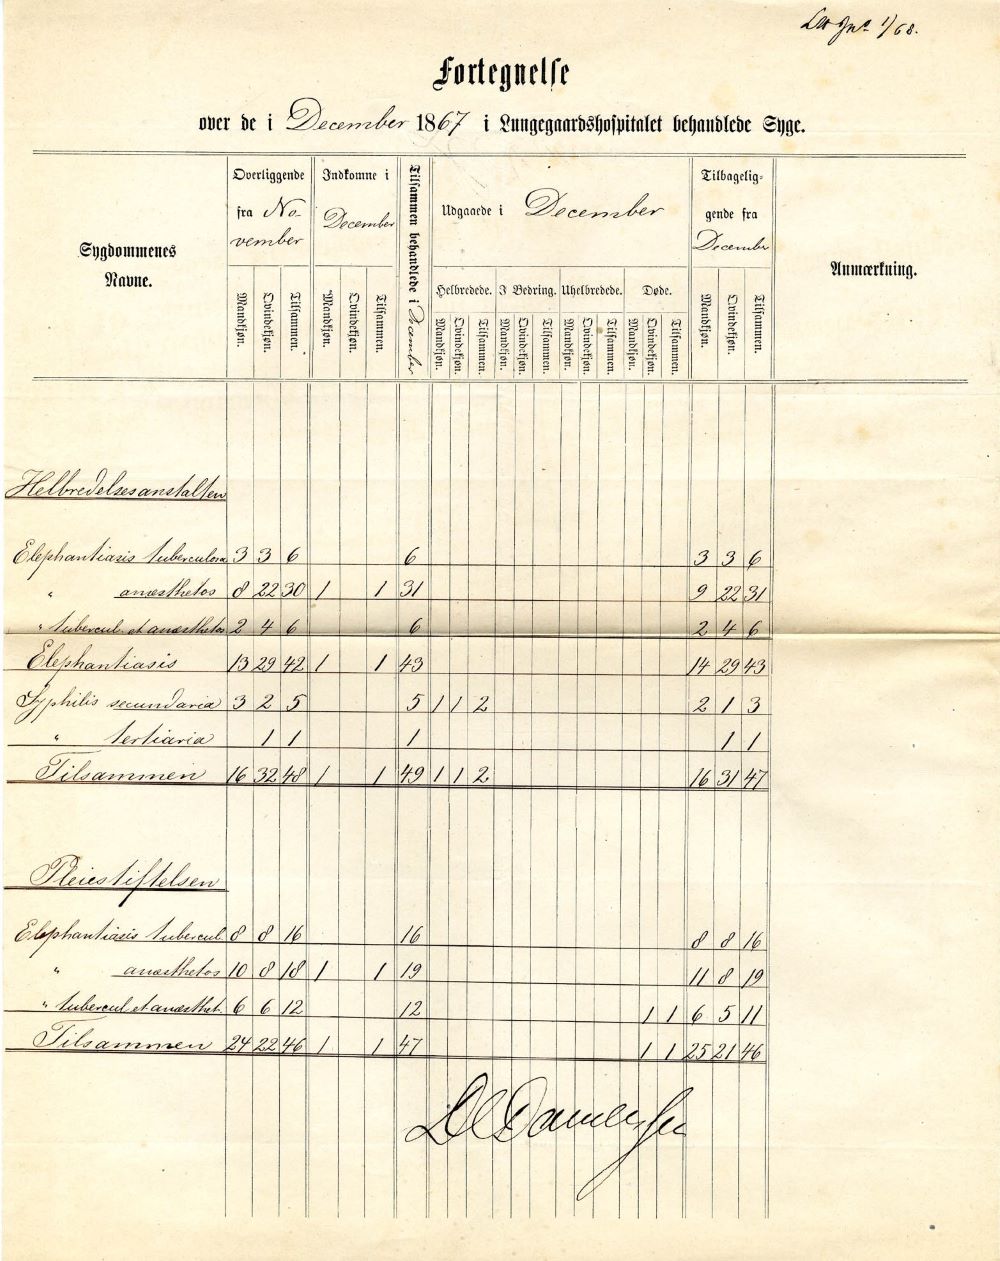 1/68.
Fortegnelse
over de i December 1867 i Lungegaardshospitalet behandlede Syge.
Sygdommenes Navne.
Overliggende fra No-vember
Indkomne i December
Tilsammen behandlede i December
Udgaaede i December
Tilbagelig-gende fra December
Anmærkning.
Helbredede. I Bedring. Uhelbredede. Døde.
Mandkjøn. Qvindekjøn. Tilsammen. Mandkjøn. Qvindekjøn. Tilsammen. Mandkjøn. Qvindekjøn. Tilsammen. Mandkjøn. Qvindekjøn. Tilsammen. Mandkjøn. Qvindekjøn. Tilsammen. Mandkjøn. Qvindekjøn. Tilsammen. Mandkjøn. Qvindekjøn. Tilsammen.
Helbredelsesanstalten
Elephantiasis tuberculosa 3 3 6 6 3 3 6
" anæsthetos 8 22 30 1 1 31 9 22 31
" tubercul. et anæsthetos 2 4 6 6 2 4 6
Elephantiasis 13 29 42 1 1 43 14 29 43
Syphilis secundaria 3 2 5 5 1 1 2 2 1 3
" tertiaria 1 1 1 1 1
Tilsammen 16 32 48 1 1 49 1 1 2 16 31 47
Pleiestiftelsen
Elephantiasis tubercul. 8 8 16 16 8 8 16
" anæsthetos 10 8 18 1 1 19 11 8 19
" tubercul. et anæsthet. 6 6 12 12 1 1 6 5 11
Tilsammen 24 22 46 1 1 47 1 1 25 21 46
DC Danielssen